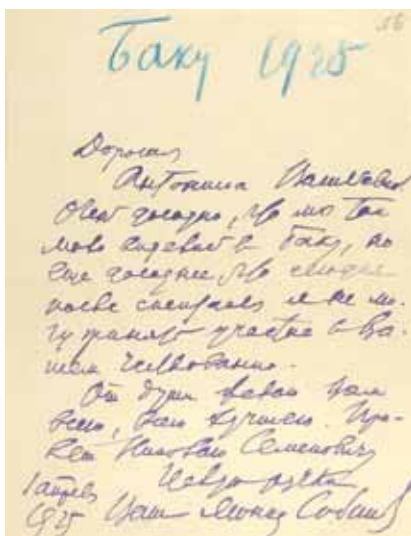 16
Баку 1925
Дорогая
Антонина Васильевна
Очень досадно, что мы так
мало виделись в Баку, но
еще досаднее, что сегодня
после спектакля я не мо-
гу принять участие в Ва-
шем чествовании.
От души желаю Вам
всего, всего лучшего. При-
вет Николаю Семеновичу
Целую ручки
1 апреля
1925 Ваш Леонид Собинов